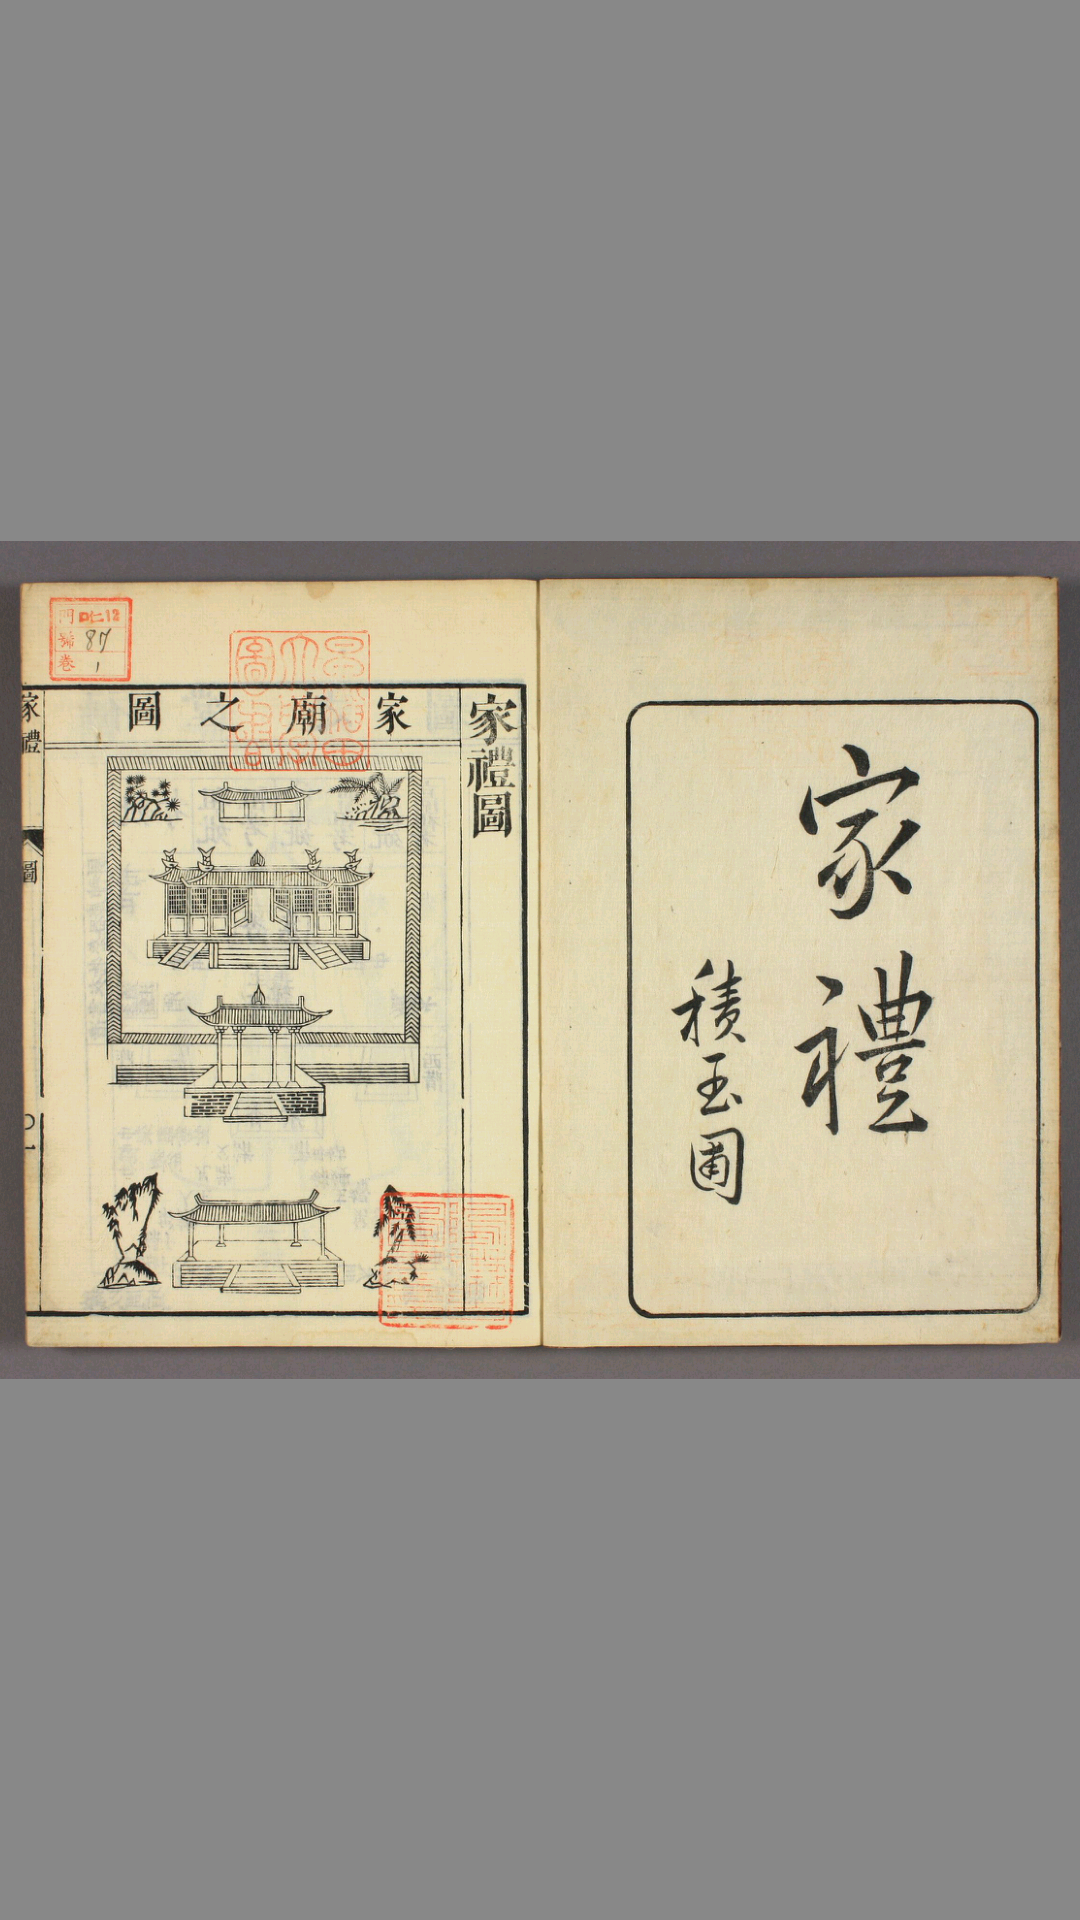 家禮
積玉圃
家禮圖
家廟之圖
門 ロ仁12
號 87
巻 1
家禮
圖
〇一